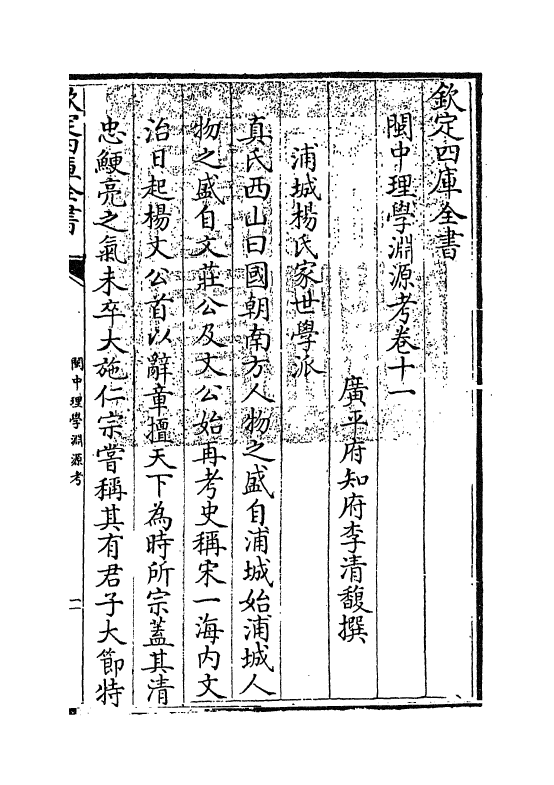 欽定四庫全書
閩中理學淵源考卷十一
廣平府知府李清馥撰
浦城楊氏家世學派
真氏西山曰國朝南方人物之盛自浦城始浦城人
物之盛自文莊公及文公始再考史稱宋一海内文
治日起楊文公首以辭章擅天下為時所宗蓋其清
忠鯁亮之氣未卒大施仁宗嘗稱其有君子大節特
欽定四庫全書
閩中理學淵源考
一